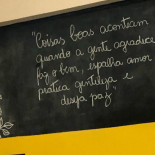 "Coisas boas acontecem
quando a gente agradece,
faz o bem, espalha amor
pratica gentileza e
deseja paz"